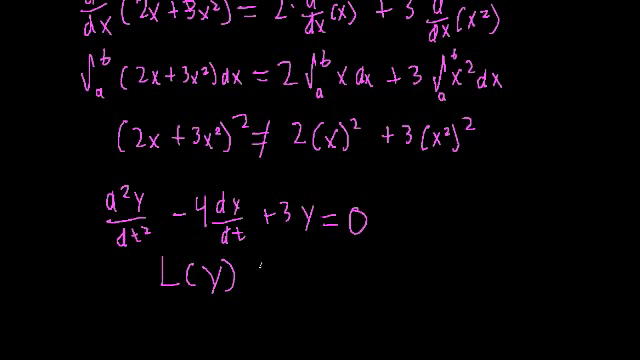 d/dx (2x + 3x²) = 2 · d/dx (x) + 3 d/dx (x²)
∫_a^b (2x + 3x²) dx = 2 ∫_a^b x dx + 3 ∫_a^b x² dx
(2x + 3x²)² ≠ 2(x)² + 3(x²)²
d²y/dt² - 4 dy/dt + 3y = 0
L(y)